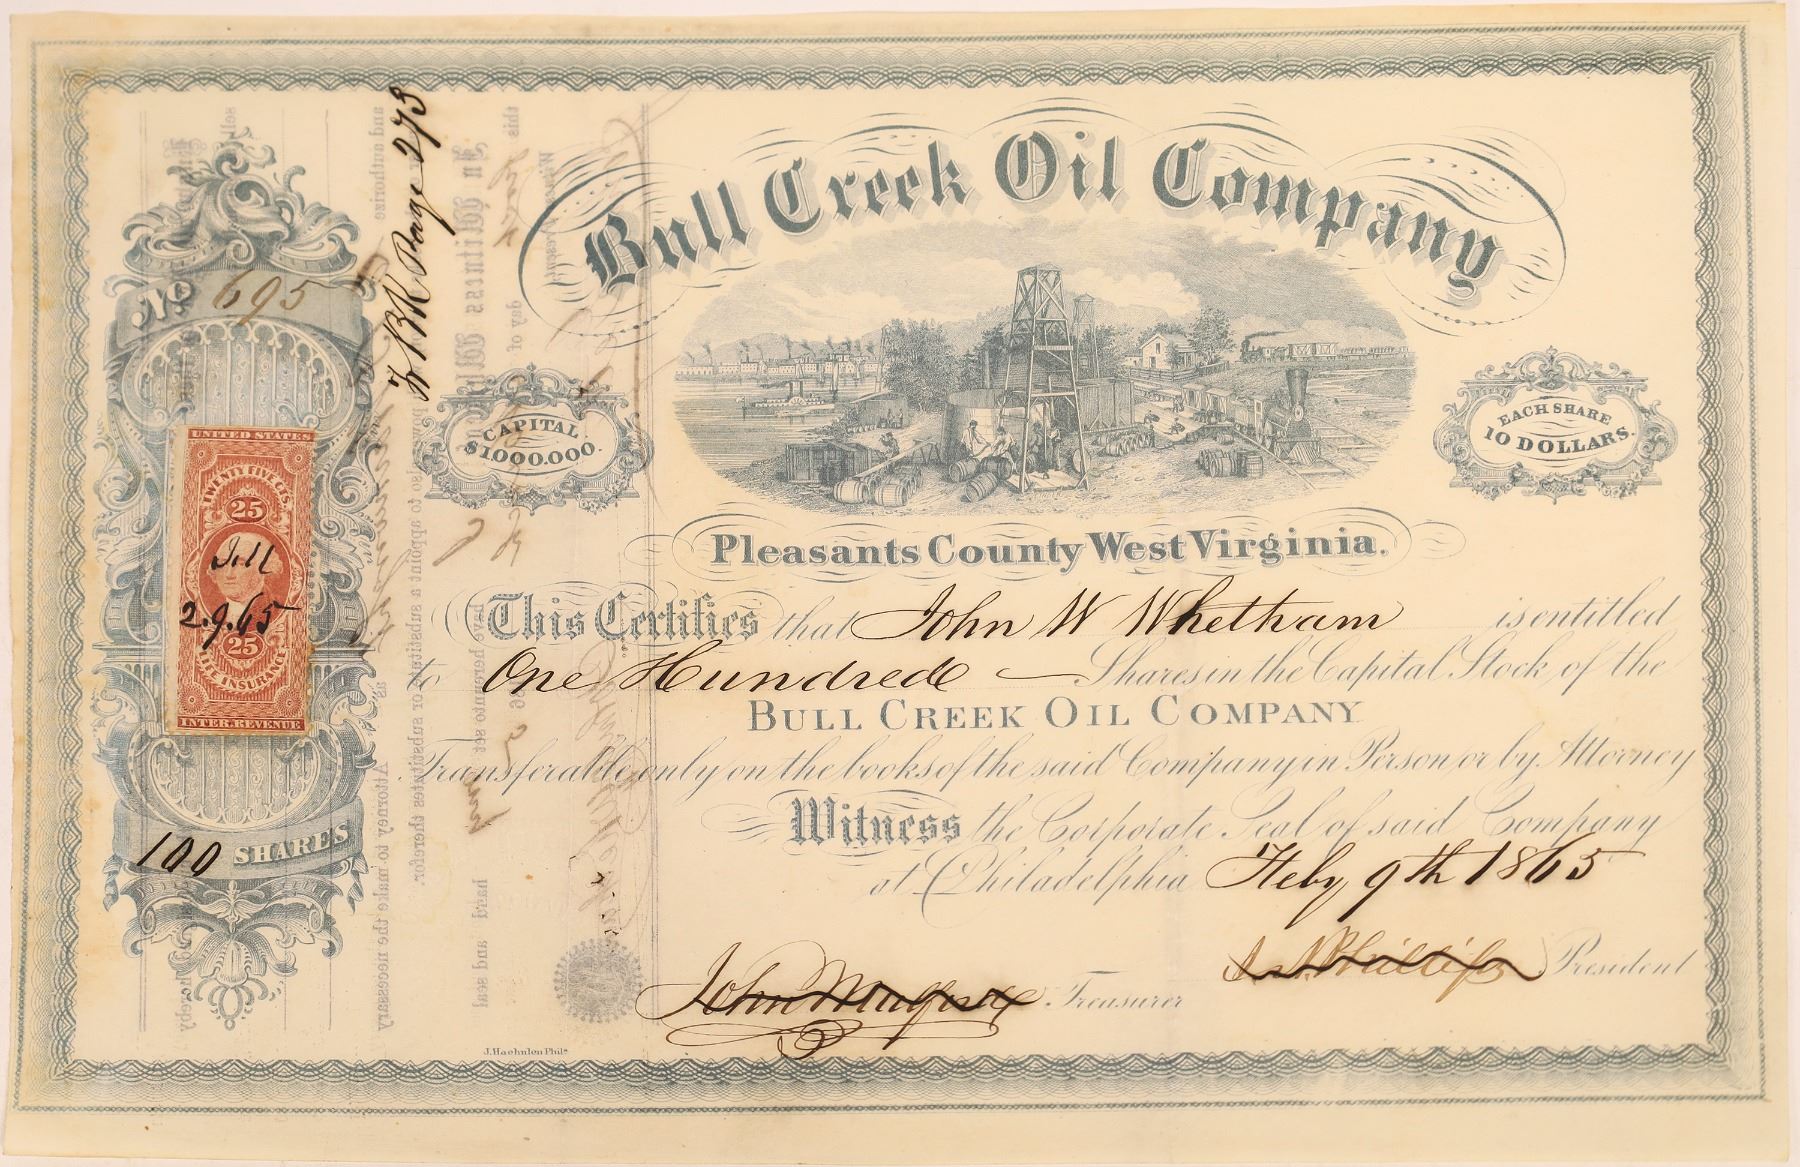 Bull Creek Oil Company
No 695
Page 273
CAPITAL
$1000.000.
EACH SHARE
10 DOLLARS.
UNITED STATES
TWENTY FIVE CTS.
25
2.9.65
25
LIFE INSURANCE
INTER. REVENUE
Pleasants County West Virginia.
This Certifies that John W Whetham is entitled
to One Hundred Shares in the Capital Stock of the
BULL CREEK OIL COMPANY
Transferable only on the books of the said Company in Person or by Attorney
Witness the Corporate Seal of said Company
at Philadelphia Feby 9th 1865
100 SHARES
John Treasurer
Phillips President
J. Haehnlen Phila